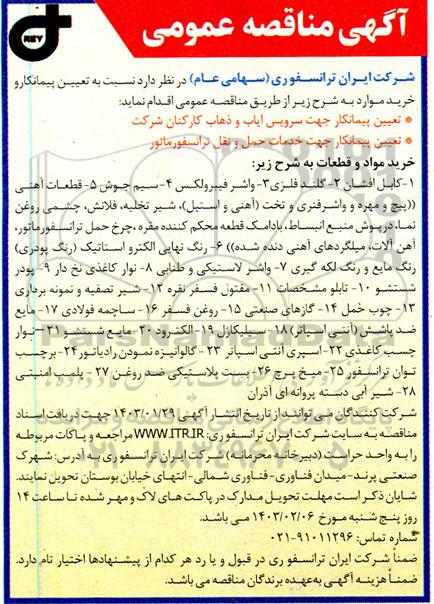 REY
آگهی مناقصه عمومی
شرکت ایران ترانسفوری (سهامی عام) در نظر دارد نسبت به تعیین پیمانکار و
خرید موارد به شرح زیر از طریق مناقصه عمومی اقدام نماید:
* تعیین پیمانکار جهت سرویس ایاب و ذهاب کارکنان شرکت
* تعیین پیمانکار جهت خدمات حمل و نقل ترانسفورماتور
خرید مواد و قطعات به شرح زیر:
۱-کابل افشان ۲- گلند فلزی ۳- واشر فیبرولکس ۴- سیم جوش ۵- قطعات آهنی
((پیچ و مهره و واشر فنری و تخت (آهنی و استیل)، شیر تخلیه، فلانش، چشمی روغن
نما، درپوش منبع انبساط، بادامک قطعه محکم کننده مقره، چرخ حمل ترانسفورماتور،
آهن آلات، میلگردهای آهنی دنده شده)) ۶- رنگ نهایی الکترو استاتیک (رنگ پودری)
رنگ مایع و رنگ لکه گیری ۷- واشر لاستیکی و طنابی ۸- نوار کاغذی نخ دار ۹- پودر
شستشو ۱۰- تابلو مشخصات ۱۱- مفتول فسفر نقره ۱۲- شیر تصفیه و نمونه برداری
۱۳- چوب حمل ۱۴- گازهای صنعتی ۱۵- روغن فسفر ۱۶- ساچمه فولادی ۱۷- مایع
ضد پاشش (آنتی اسپاتر) ۱۸- سیلیکاژل ۱۹- الکترود ۲۰- مایع شستشو ۲۱- نوار
چسب کاغذی ۲۲- اسپری آنتی اسپاتر ۲۳- گالوانیزه نمودن رادیاتور ۲۴- برچسب
توان ترانسفور ۲۵- میخ پرچ ۲۶- بست پلاستیکی ضد روغن ۲۷- پلمب امنیتی
۲۸- شیر آبی دسته پروانه ای آذران
شرکت کنندگان می توانند از تاریخ انتشار آگهی ۱۴۰۳/۰۱/۲۹ جهت دریافت اسناد
مناقصه به سایت شرکت ایران ترانسفوری: WWW.ITR.IR مراجعه و پاکات مربوطه
را به واحد حراست (دبیرخانه محرمانه) شرکت ایران ترانسفوری به آدرس: شهرک
صنعتی پرند- میدان فناوری- فناوری شمالی- انتهای خیابان بوستان تحویل نمایند.
شایان ذکر است مهلت تحویل مدارک در پاکت های لاک و مهر شده تا ساعت ۱۴
روز پنج شنبه مورخ ۱۴۰۳/۰۲/۰۶ می باشد.
شماره تماس: ۹۱۰۱۱۲۹۶-۰۲۱
ضمناً شرکت ایران ترانسفوری در قبول و یا رد هر کدام از پیشنهادها اختیار تام دارد.
ضمناً هزینه آگهی به عهده برندگان مناقصه می باشد.